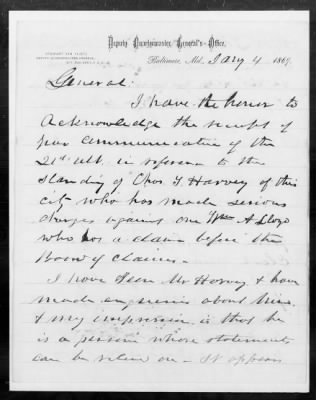 Deputy Quartermaster General's Office,
STEWART VAN VLIET,
DEPUTY QUARTERMASTER GENERAL,
Baltimore, Md., Jany 4 1869.
General:
I have the honor to
acknowledge the receipt of
your communication of the
21st ult. in reference to the
standing of Chas. T. Harvey of this
city who has made serious
charges against one Wm A Lloyd
who has a claim before the
Board of Claims.
I have seen Mr Harvey & have
made enquiries about him
& my impression is that he
is a person whose statements
can be relied on - It appears